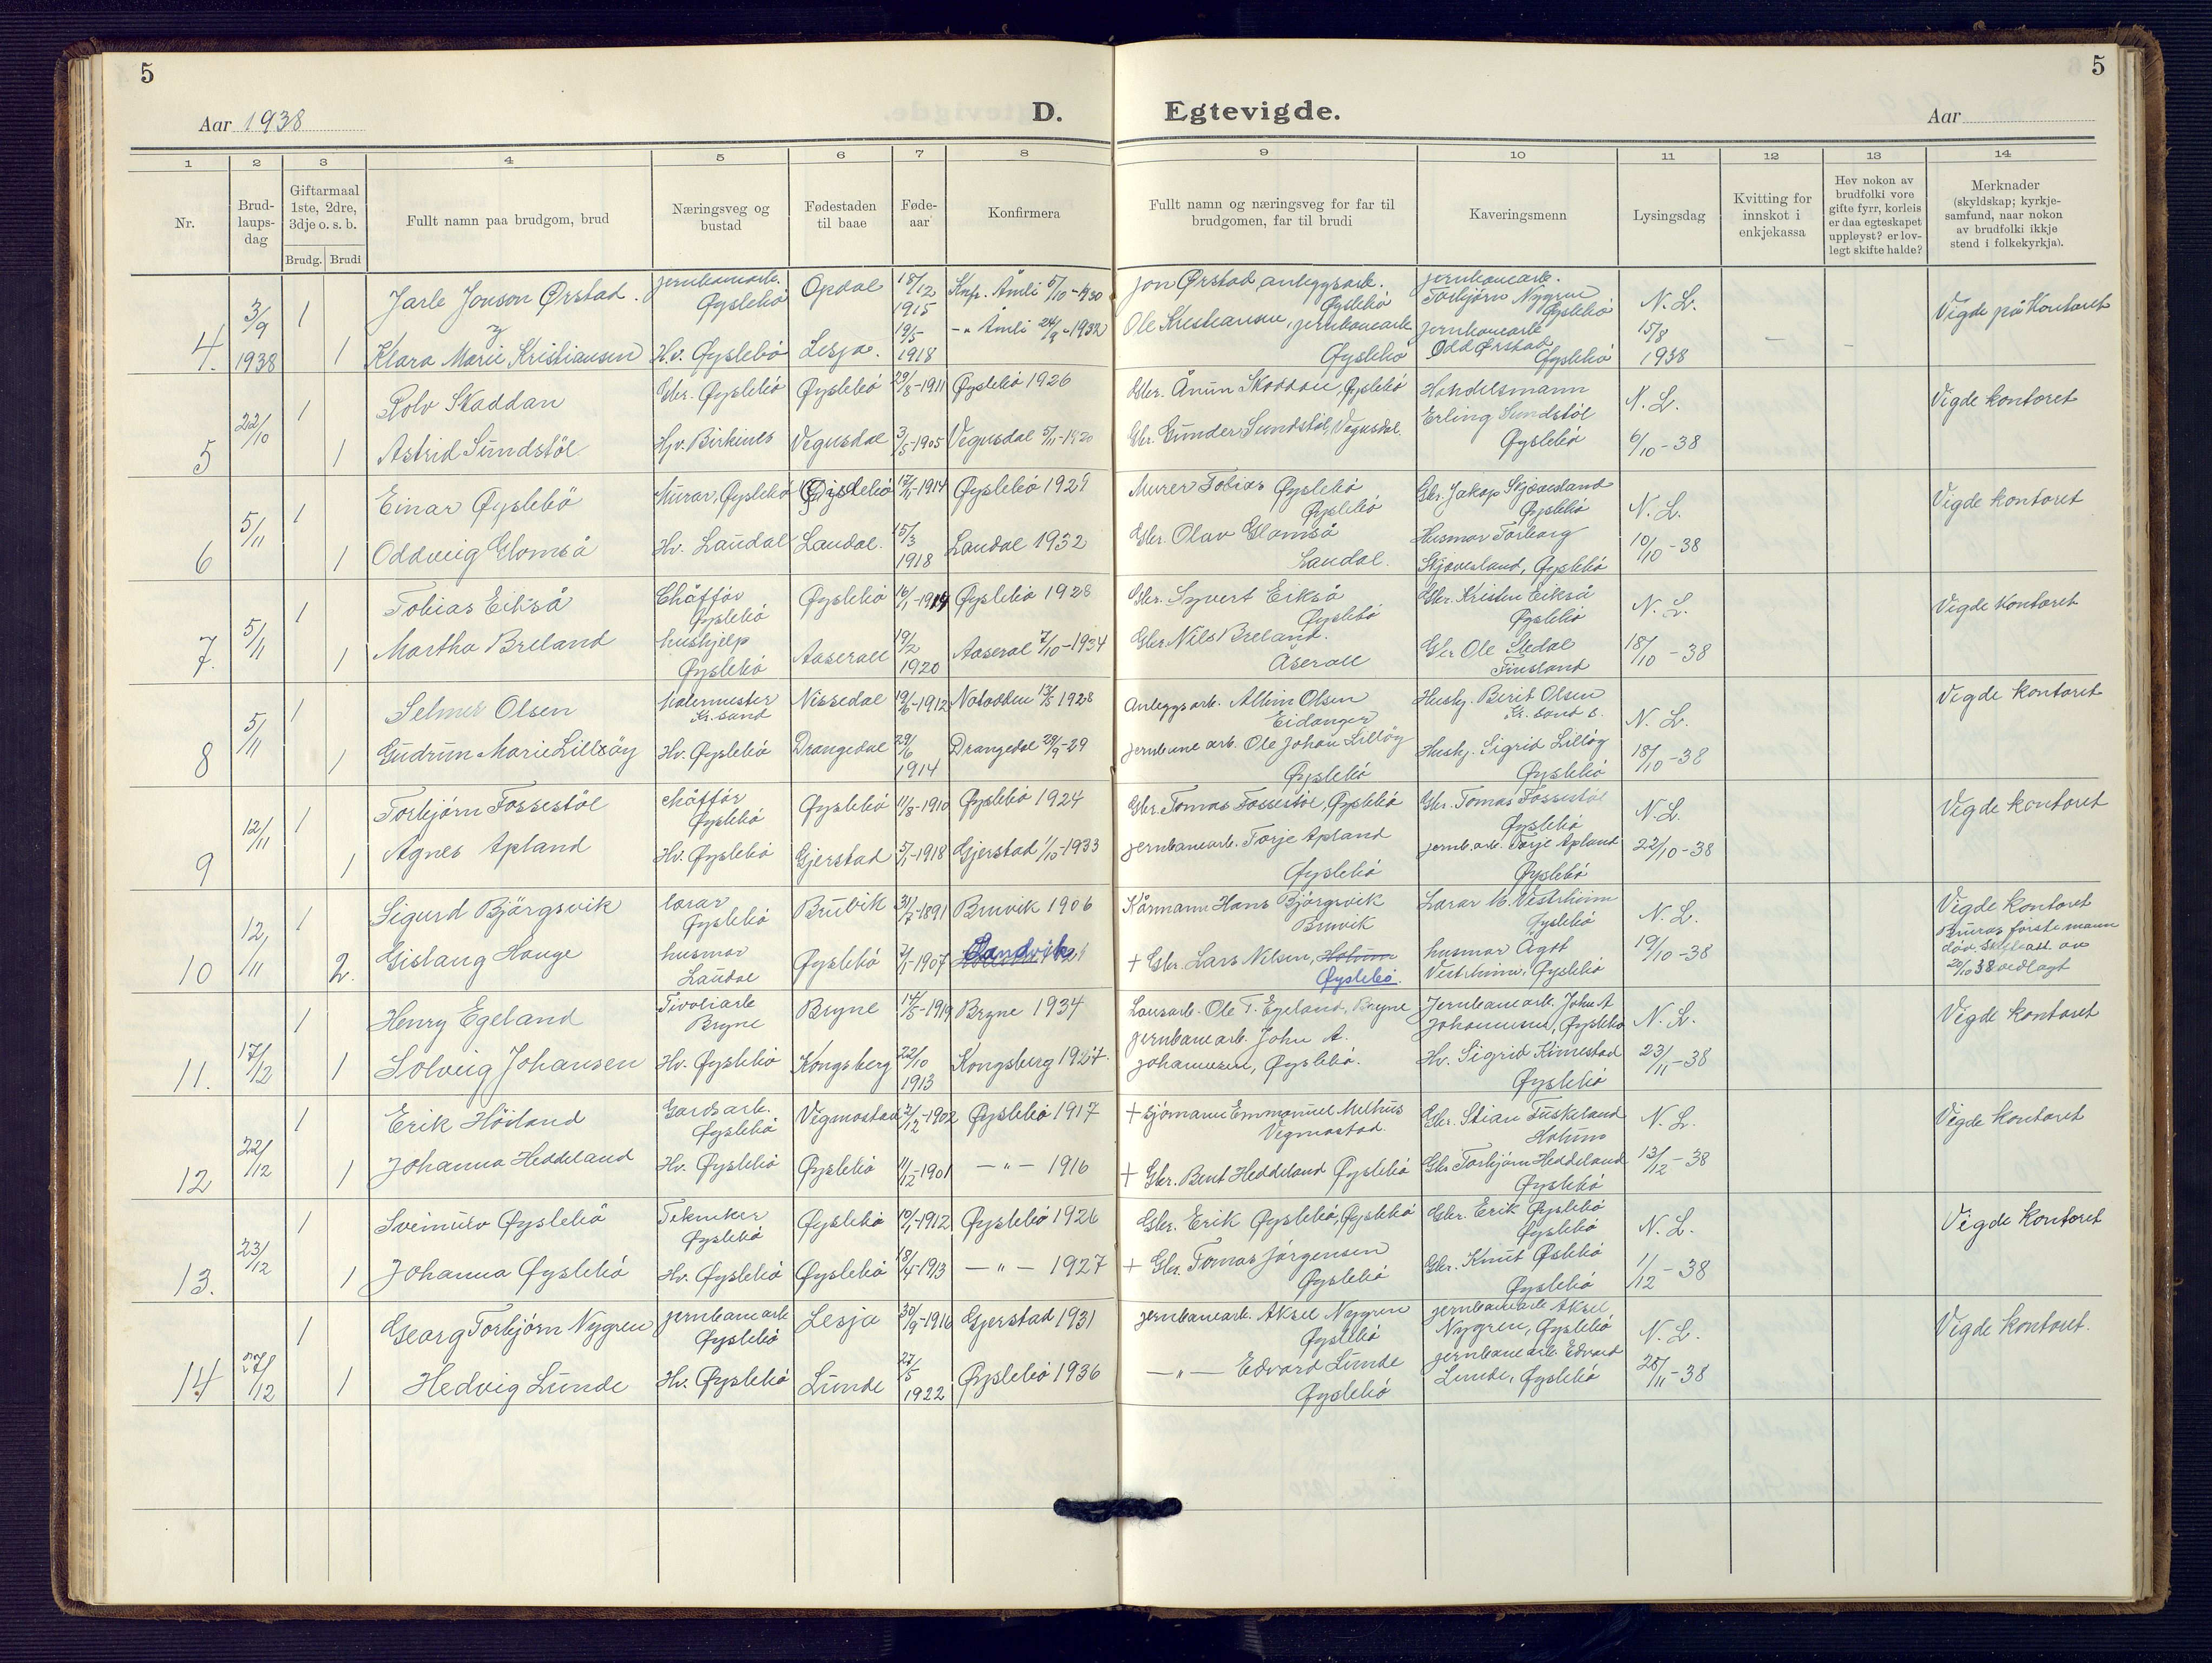 5
Aar 1938
D. Egtevigde.
Aar
5
1 2 3 4 5 6 7 8 9 10 11 12 13 14
Nr.
Brud-
laups-
dag
Giftarmaal
1ste, 2dre,
3dje o. s. b.
Brudg. Brudi
Fullt namn paa brudgom, brud
Næringsveg og
bustad
Fødestaden
til baae
Føde-
aar
Konfirmera
Fullt namn og næringsveg for far til
brudgomen, far til brudi
Kaveringsmenn
Lysingsdag
Kvitting for
innskot i
enkjekassa
Hev nokon av
brudfolki vore
gifte fyrr, korleis
er daa egteskapet
uppløyst? er lov-
legt skifte halde?
Merknader
(skyldskap; kyrkje-
samfund, naar nokon
av brudfolki ikkje
stend i folkekyrkja).
4. 3/9 1938
1 Jarle Jonson Ørstad. jernbanearb. Øyslebö Opdal 18/12 1915 Knf. Åmli 5/10-1930 Jon Ørstad, anleggsarb. Øyslebö jernbanearb. Torbjörn Nygren Øyslebö N. L. Vigde på Kontoret
1 Klara Marie Kristiansen Hv. Øyslebö Lesja. 19/5 1918 -"- Åmli 1932 Ole Kristiansen, jernbanearb. Øyslebö jernbanearb. Odd Ørstad Øyslebö 15/8 1938
5 22/10
1 Rolv Skaddan Gbr. Øyslebö Øyslebö 29/8-1911 Øyslebö 1926 Gbr. Ånun Skaddan, Øyslebö Handelsmann Erling Sundstöl Øyslebö N. L. Vigde kontoret
1 Astrid Sundstöl Hjv. Birkenes Vegusdal 3/5-1905 Vegusdal 5/11-1920 Gbr. Gunder Sundstöl, Vegusdal 6/10-38
6 5/11
1 Einar Øyslebö Murar, Øyslebö Øyslebö 1914 Øyslebö 1929 Murer Tobias Øyslebö Øyslebö Gbr. Jakop Skjævesland Øyslebö N. L. Vigde kontoret
1 Oddveig Glomså Hv. Laudal Laudal. 15/3 1918 Laudal 1932 Gbr. Olav Glomså Laudal. Husmor Torborg Skjævesland, Øyslebö 10/10-38
7. 5/11
1 Tobias Eikså Chåfför Øyslebö Øyslebö 16/1-1914 Øyslebö 1928 Gbr. Syvert Eikså Øyslebö Gbr. Kristen Eikså Øyslebö N. L. Vigde Kontoret
1 Martha Breland hushjelp Øyslebö Aaserall 19/2 1920 Aaseral 7/10-1934 Gbr. Nils Breland. Åserall Gbr Ole Stedal Finsland 18/10-38
8 5/11
1 Selmer Olsen Malermester Kr.sand Nissedal 19/6-1912 Notodden 13/5 1928 Anleggsarb. Albin Olsen Eidanger Hushj. Berit Olsen Kr.sand S. N. L. Vigde kontoret
1 Gudrun Marie Lillöy Hv. Øyslebö Drangedal 29/6 1914 Drangedal 29/9-29 jernbane arb. Ole Johan Lillöy Øyslebö Hushj. Sigrid Lillöy Øyslebö 18/10-38
9 12/11
1 Torbjörn Fossestöl chåfför Øyslebö Øyslebö 11/8-1910 Øyslebö 1924 Gbr. Tomas Fossestöl, Øyslebö Gbr. Tomas Fossestöl Øyslebö N. L. Vigde kontoret
1 Agnes Apland Hv. Øyslebö Gjerstad 5/1-1918 Gjerstad 1/10-1933 jernbanearb. Torje Apland Øyslebö jernb.arb. Torje Apland Øyslebö 22/10-38
10 12/11
1 Sigurd Björgsvik lærar Øyslebö Bruvik 31/7-1891 Bruvik 1906 Kårmann Hans Björgsvik Bruvik Lærar M. Vestrheim Øyslebö N. L. Vigde kontoret
Bruras förste mann död. Skifteatt. av 20/10 38 vedlagt
2. Gislaug Hauge husmor Laudal Øyslebö 1907 Landvik + Gbr. Lars Nilsen, Holum Øyslebö. husmor Ågot Vestrheim, Øyslebö 19/10-38
11. 17/12
1 Henry Egeland Tivoliarb. Bryne Bryne 14/5-1919 Bryne 1934 Lausarb. Ole T. Egeland, Bryne Jernbanearb. John A Johannesen, Øyslebö N. L. Vigde kontoret
1 Solveig Johansen Hv. Øyslebö Kongsberg 22/10 1913 Kongsberg 1927. jernbanearb. John A. Johannesen, Øyslebö. Hv. Sigrid Kimestad Øyslebö 23/11-38
12 22/12
1 Erik Höiland Gardsarb. Øyslebö Vegmostad 1902 Øyslebö 1917 + Sjömann Emmanuel Melhus Vegmostad. Gbr. Stian Tuskeland Holum N. L. Vigde kontoret
1 Johanna Heddeland Hv. Øyslebö Øyslebö 11/12-1901 -"- 1916 + Gbr. Bent Heddeland Øyslebö Gbr Torbjörn Heddeland Øyslebö 13/12-38
13. 23/12
1 Sveinulv Øyslebö Tekniker Øyslebö Øyslebö 10/1-1912 Øyslebö 1926 Gbr. Erik Øyslebö, Øyslebö Gbr. Erik Øyslebö Øyslebö N. L. Vigde kontoret
1 Johanna Øyslebö Hv. Øyslebö Øyslebö 18/4-1913 -"- 1927 + Gbr. Tomas Jörgensen Øyslebö Gbr. Knut Øslebö Øyslebö 1/12-38
14 27/12
1 Georg Torbjörn Nygren jernbanearb Øyslebö Lesja 30/9-1916 Gjerstad 1931 jernbanearb. Aksel Nygren Øyslebö jernbanearb Aksel Nygren, Øyslebö N. L. Vigde kontoret.
1 Hedvig Lunde Hv. Øyslebö Lunde 27/5 1922 Øyslebö 1936 -"- Edvard Lunde Øyslebö jernbane arb Edvard Lunde, Øyslebö 28/11-38